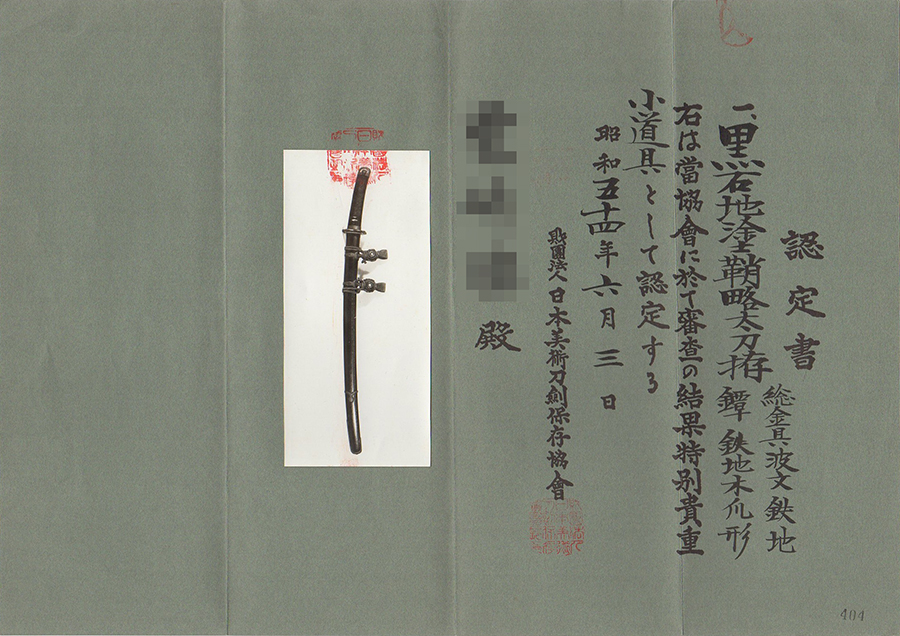 認定書
一、黒石地塗鞘略太刀拵
総金具波文鉄地
鐔鉄地木瓜形
右は當協會に於て審査の結果特別貴重
小道具として認定する
昭和五十四年六月三日
財團法人日本美術刀劍保存協會
殿
404